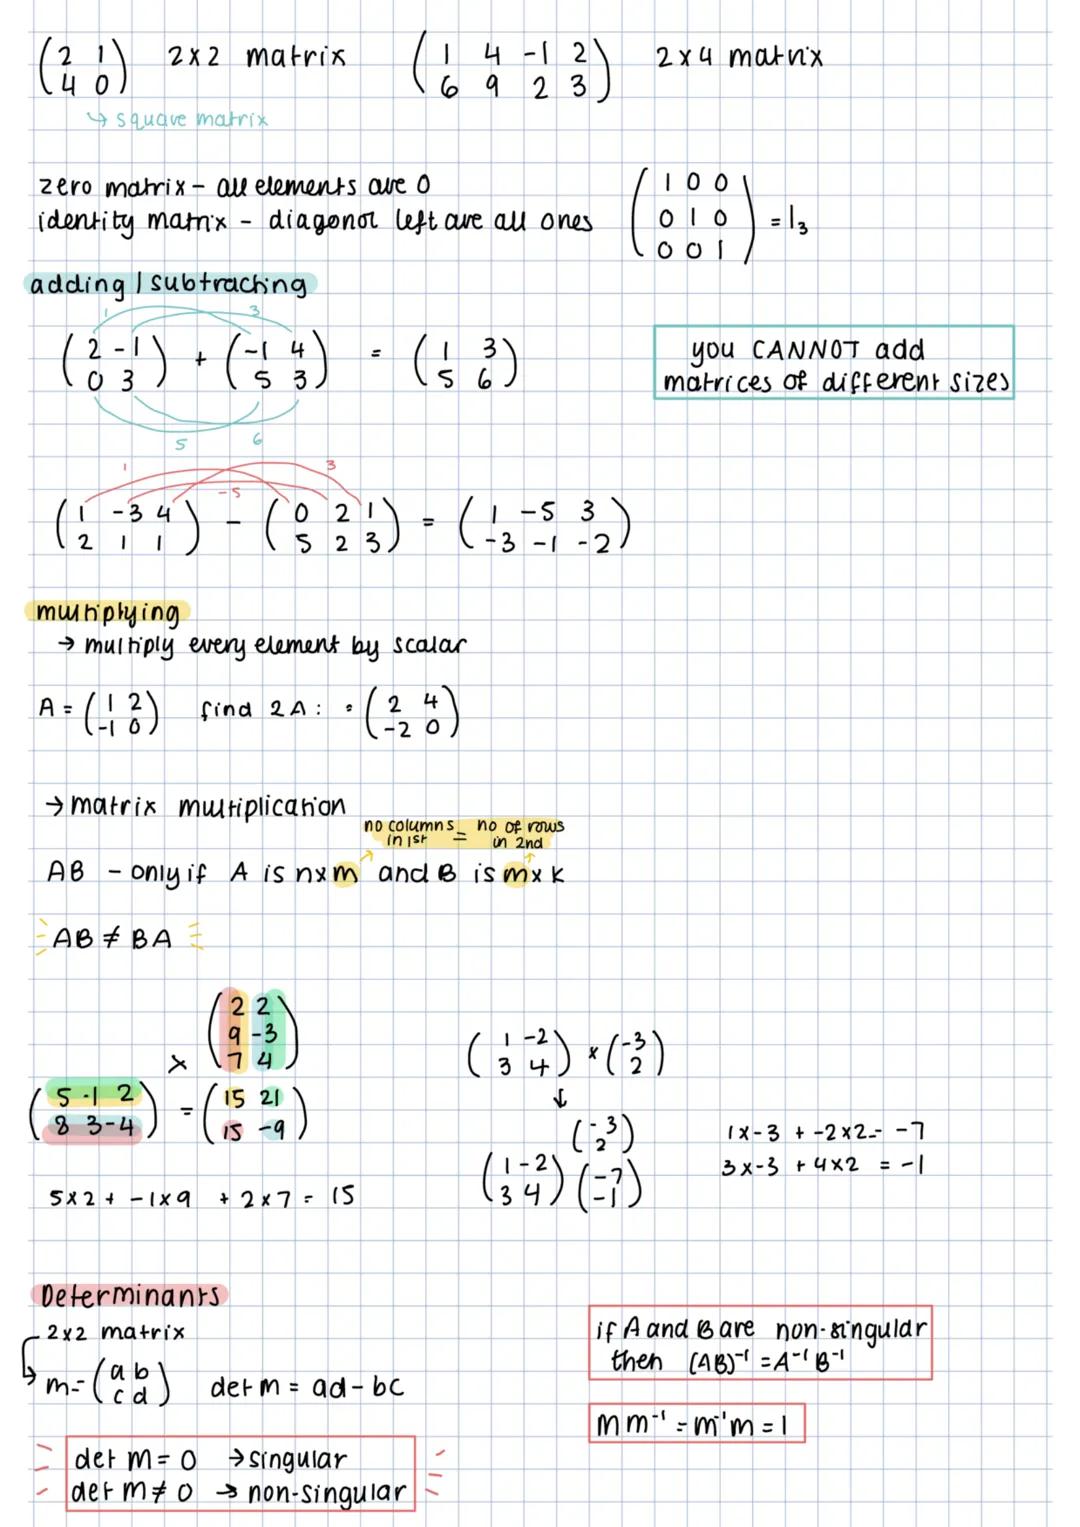 (2 1
4 0) 2x2 matrix (1 4 -1 2
6 9 2 3) 2x4 matrix
↳ square matrix
zero matrix - all elements are 0
identity matrix - diagonal left are all ones
(1 0 0
0 1 0
0 0 1) = I₃
adding / subtracting
1 3
(2 -1
0 3) + (-1 4
5 3) = (1 3
5 6)
5 6
you CANNOT add
matrices of different sizes
1 -5 3
(1 -3 4
2 1 1) - (0 2 1
5 2 3) = (1 -5 3
-3 -1 -2)
multiplying
→ multiply every element by scalar
A = (1 2
-1 0) find 2A: = (2 4
-2 0)
→ matrix multiplication
no columns in 1st = no of rows in 2nd
AB - only if A is nxm and B is mxk
AB ≠ BA
x (2 2
9 -3
7 4)
(5 -1 2
8 3 -4) = (15 21
15 -9)
5x2 + -1x9 + 2x7 = 15
(1 -2
3 4) x (-3
2)
↓
(-3
2)
(1 -2
3 4) (-7
-1)
1x-3 + -2x2 = -7
3x-3 + 4x2 = -1
Determinants
2x2 matrix
m = (a b
c d) det m = ad - bc
det m = 0 → singular
det m ≠ 0 → non-singular
if A and B are non-singular
then (AB)⁻¹ = A⁻¹B⁻¹
mm⁻¹ = m⁻¹m = 1